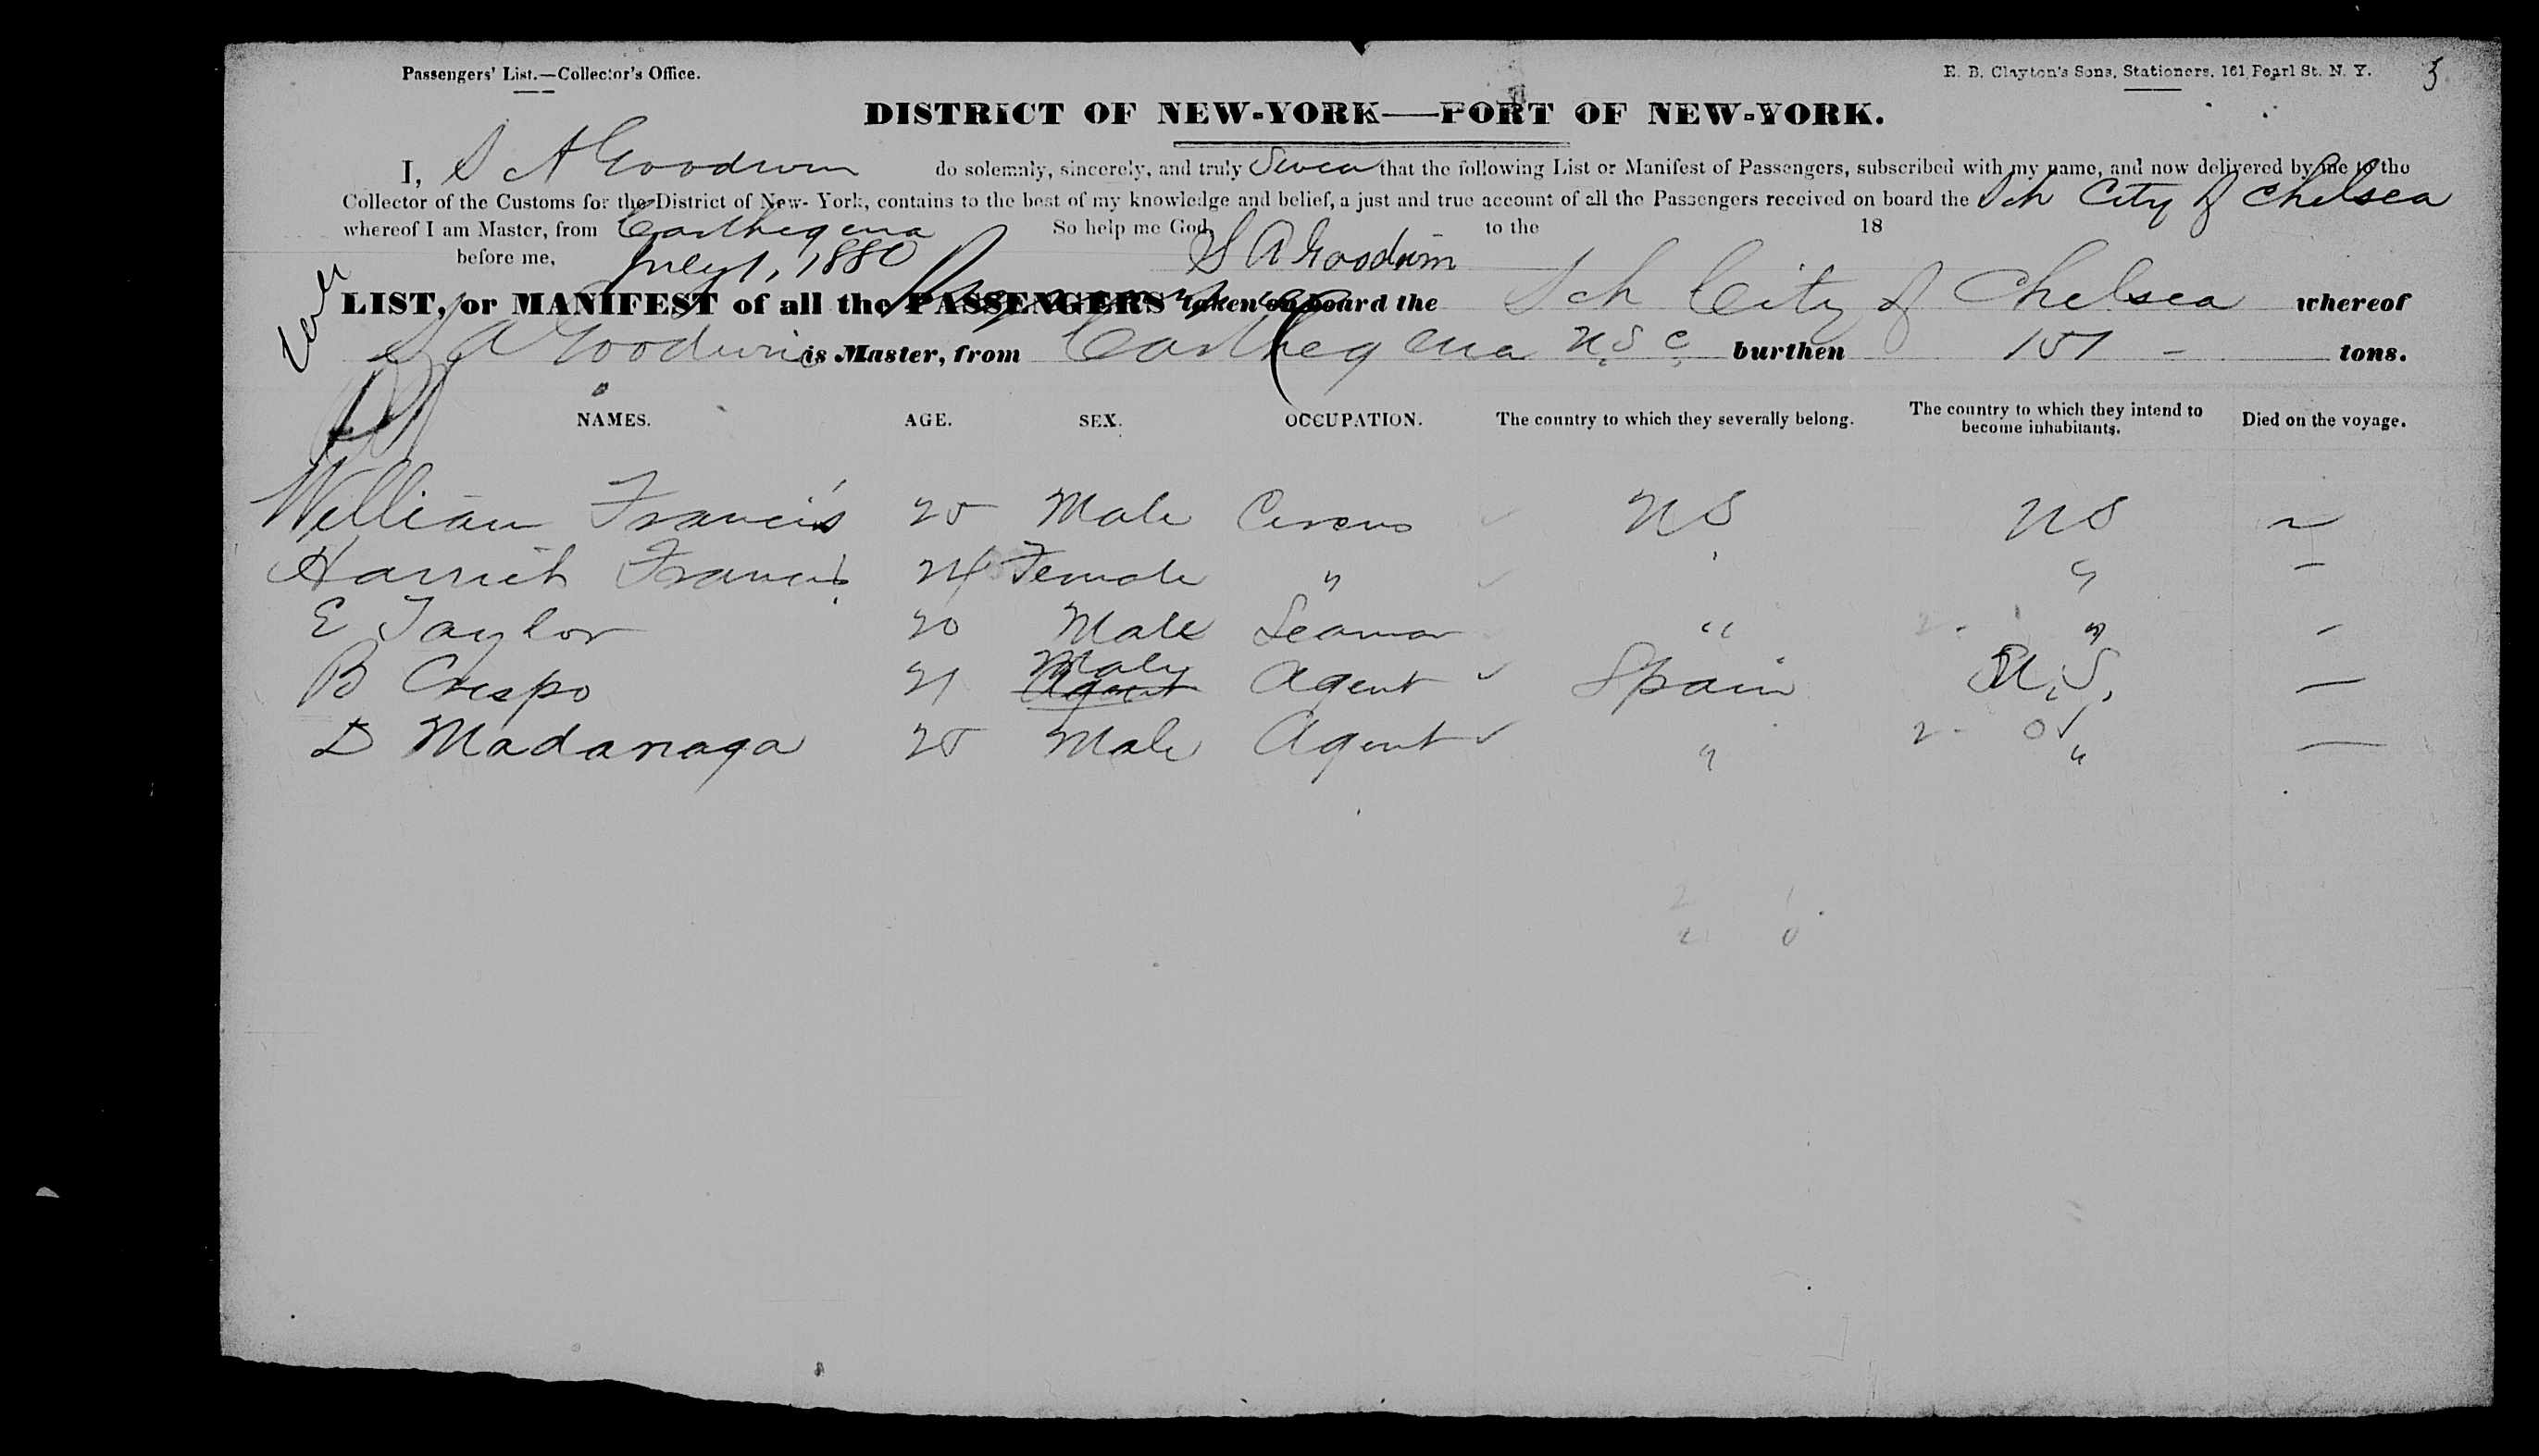 Passengers' List.—Collector's Office.
E. B. Clayton's Sons, Stationers, 161 Pearl St. N. Y.
DISTRICT OF NEW-YORK—PORT OF NEW-YORK.
I, S A Goodwin do solemnly, sincerely, and truly Swear that the following List or Manifest of Passengers, subscribed with my name, and now delivered by me to the
Collector of the Customs for the District of New-York, contains to the best of my knowledge and belief, a just and true account of all the Passengers received on board the Sch City of Chelsea
whereof I am Master, from Carthegena So help me God, to the 18
before me, July 1, 1880 S A Goodwin
LIST, or MANIFEST of all the PASSENGERS taken on board the Sch City of Chelsea whereof
S A Goodwin is Master, from Carthegena U.S.C. burthen 151 - tons.
NAMES. AGE. SEX. OCCUPATION. The country to which they severally belong. The country to which they intend to become inhabitants. Died on the voyage.
William Francis 25 Male Circus US US ~
Harriet Francis 24 Female " " -
E Taylor 20 Male Seaman " " -
B Crespo 21 Male Agent Agent Spain U.S. —
D Madanaga 25 Male Agent " " —